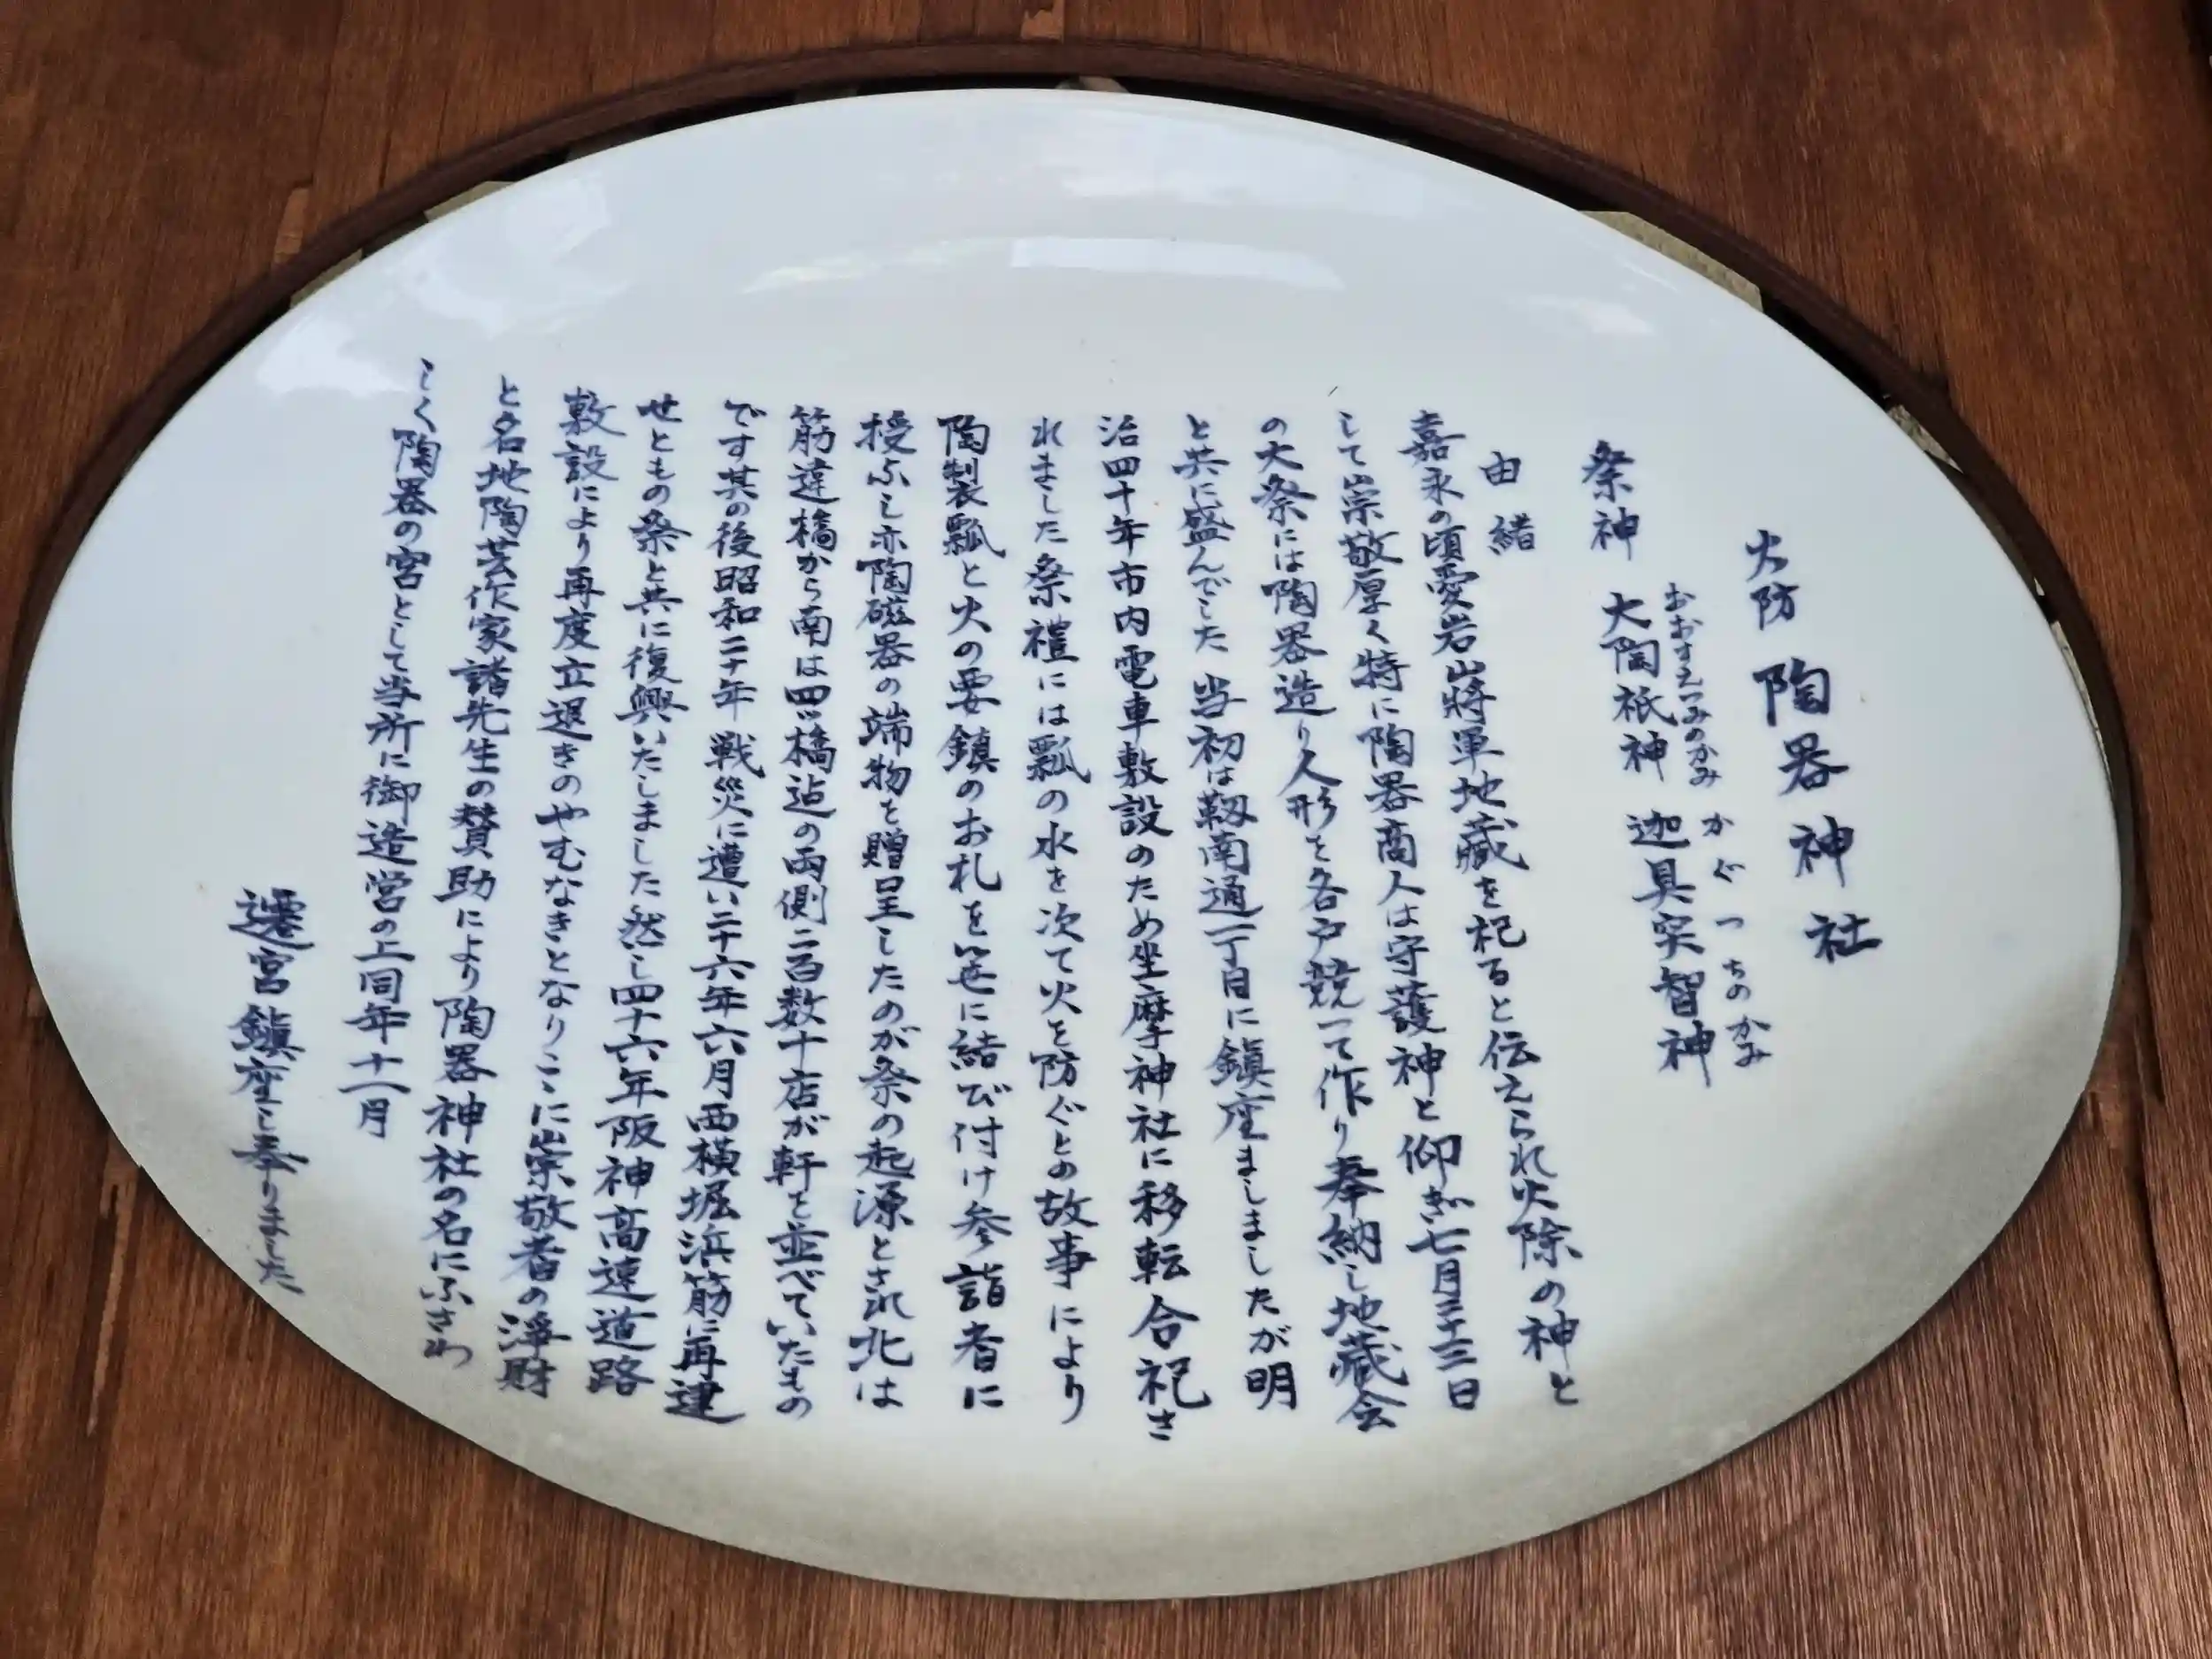 火防 陶器神社
祭神 大陶祇神 迦具突智神
おおすえつみのかみ かぐつちのかみ
由緒
嘉永の頃愛宕山將軍地蔵を祀ると伝えられ火除の神と
して崇敬厚く特に陶器商人は守護神と仰ぎ七月二十三日
の大祭には陶器造り人形を各戸競って作り奉納し地蔵会
と共に盛んでした 当初は靱南通一丁目に鎮座ましましたが明
治四十年市内電車敷設のため坐摩神社に移転合祀さ
れました祭禮には瓢の水を次て火を防ぐとの故事により
陶製瓢と火の要鎮のお札を笹に結び付け参詣者に
授ふし亦陶磁器の端物を贈呈したのが祭の起源とされ北は
筋違橋から南は四ツ橋迠の両側二百数十店が軒を並べていたもの
です其の後昭和二十年戦災に遭い二十六年六月西横堀浜筋に再建
せともの祭と共に復興いたしました然し四十六年阪神高速道路
敷設により再度立退きのやむなきとなりここに崇敬者の浄財
と名地陶芸作家諸先生の賛助により陶器神社の名にふさわ
しく陶器の宮として当所に御造営の上同年十一月
遷宮鎮座し奉りました